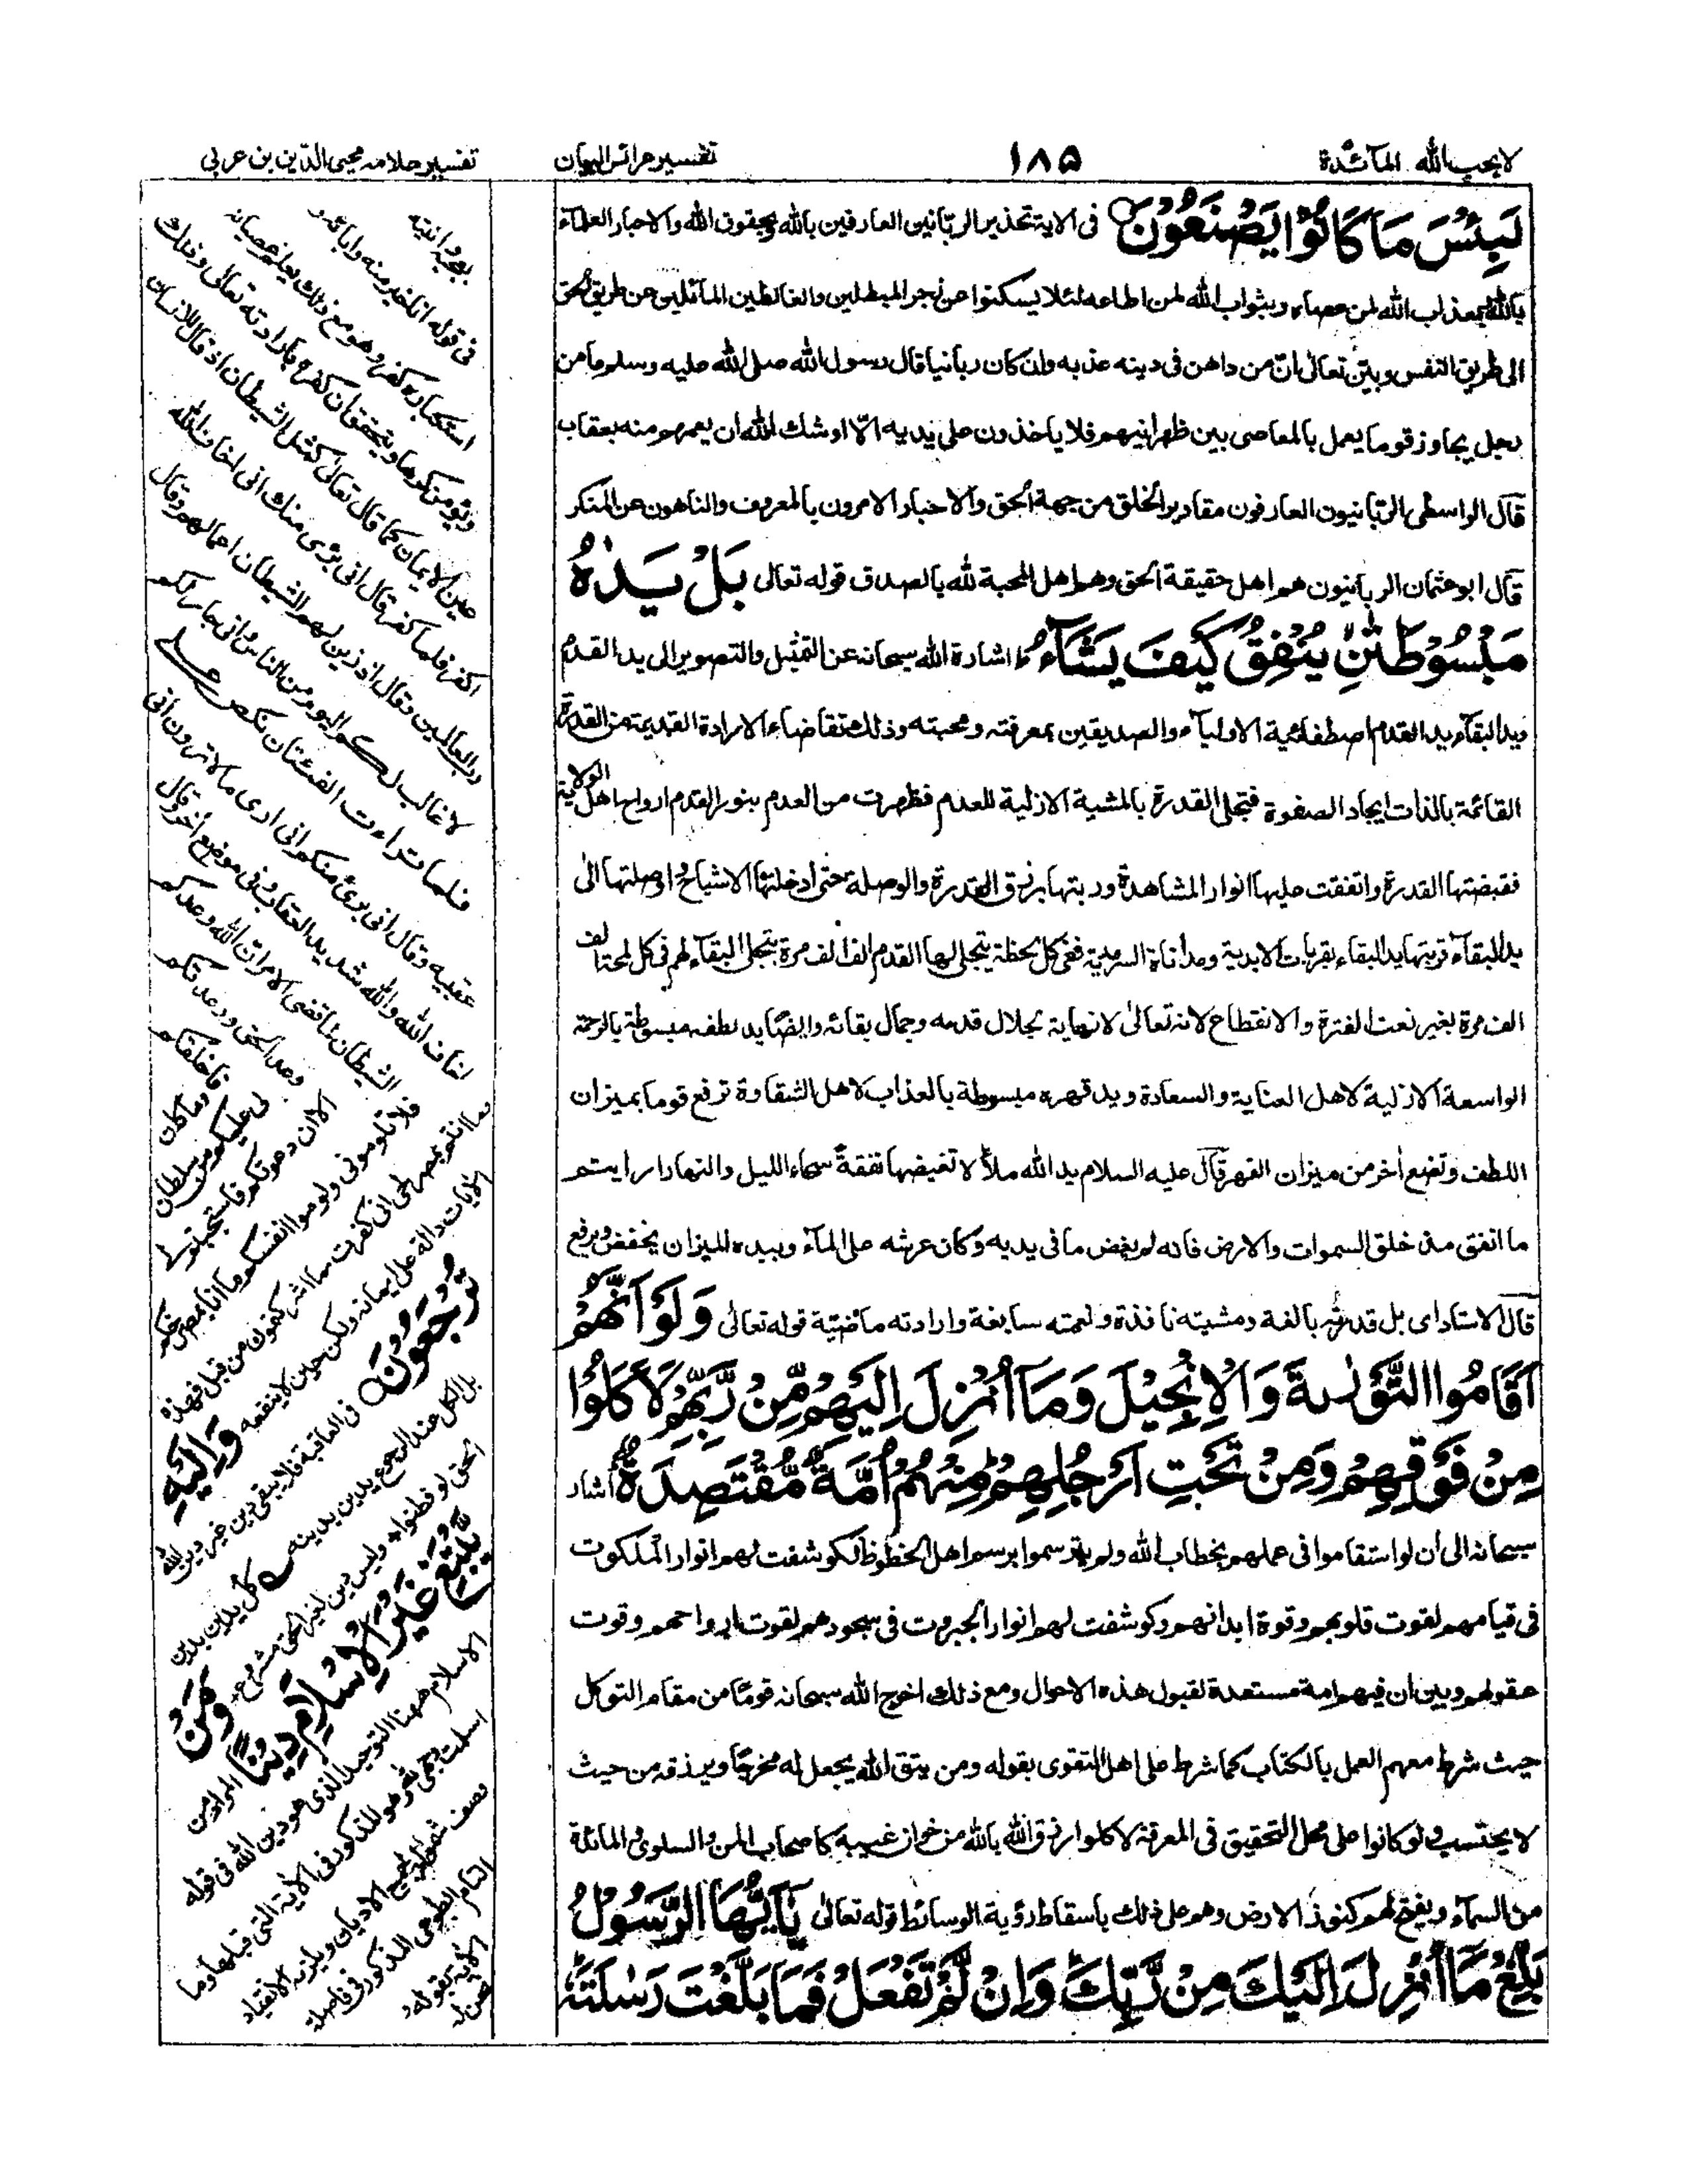 لا يحب الله المآئدة
١٨٥
تفسير عرائس البيان
تفسير علامه محيى الدين بن عربى
لَبِئْسَ مَا كَانُوْا يَصْنَعُوْنَ فى الاية تحذير الربّانيين العارفين بالله وبحقوق الله والاحبار العلمآء
بالله بعذاب الله لمن عصاه وبثواب الله لمن اطاعه لئلا يسكنوا عن زجر المبطلين والغالطين المآئلين عن طريق الحق
الى طريق النفس وبيّن تعالى انّ من داهن فى دينه عذبه وان كان ربانيا قال رسول الله صلى الله عليه وسلم ما من
رجل يجاوز قوما يعمل بالمعاصى بين ظهرانيهم فلا ياخذون على يديه الّا اوشك الله ان يعمهم منه بعقاب
قال الواسطى الربّانيون العارفون مقادير الخلق من جهة الحق والاحبار الامرون بالمعروف والناهون عن المنكر
قال ابو عثمان الربانيون هم اهل حقيقة الحق وهم اهل المحبة لله بالصدق قوله تعالى بَلْ يَدٰهُ
مَبْسُوْطَتٰنِ يُنْفِقُ كَيْفَ يَشَآءُ ط اشارة الله سبحانه عن التمثيل والتصوير الى يد القدم
ويد البقآء يد القدم اصطفائية الاوليآء والصديقين بمعرفته ومحبته وذلك تقاضاء الارادة القديمة من القدرة
القائمة بالذات ايجاد الصفوة فتجلى القدرة بالمشية الازلية للعدم فظهرت من العدم بنور القدم ارواح اهل الولاية
فقبضتها القدرة واتفقت عليها انوار المشاهدة وربتها برزق القدرة والوصلة حتى ادخلتها الاشباح واوصلتها الى
يد البقآء قربتها يد البقاء بقربات الابدية ومدأناة السرمدية ففى كل لحظة يتجلى لها القدم الف الف مرة يتجلى البقآء لهم فى كل لمحة الف
الف مرة بغير نعت الفترة والانقطاع لانه تعالى لا نهاية لجلال قدمه وجمال بقائه وايضًا يد لطفه مبسوطة بالرحمة
الواسعة الازلية لاهل العناية والسعادة ويد قهره مبسوطة بالعذاب لاهل الشقاوة ترفع قوما بميزان
اللطف وتضع أخر من ميزان القهر قال عليه السلام يد الله ملأ لا تغيضها نفقةً سحاء الليل والنهار ارايتم
ما انفق منذ خلق السموات والارض فانه لم يغض ما فى يديه وكان عرشه على المآء وبيده الميزان يخفض ويرفع
قال الاستاد اى بل قدرته بالغة ومشيته نافذة ونعمته سابغة وارادته ماضيّة قوله تعالى وَلَوْ اَنَّهُمْ
اَقَامُوا التَّوْرٰىةَ وَالْاِنْجِيْلَ وَمَآ اُنْزِلَ اِلَيْهِمْ مِّنْ رَّبِّهِمْ لَاَكَلُوْا
مِنْ فَوْقِهِمْ وَمِنْ تَحْتِ اَرْجُلِهِمْ ط مِنْهُمْ اُمَّةٌ مُّقْتَصِدَةٌ ط اشار
سبحانه الى ان لو استقاموا فى عملهم بخطاب الله ولم يترسموا برسم اهل الحظوظ لكوشفت لهم انوار الملكوت
فى قيامهم لقوت قلوبهم وقوة ابدانهم وكوشفت لهم انوار الجبروت فى سجودهم لقوت ارواحهم وقوت
عقولهم وبين ان فيهم امة مستعدة لقبول هذه الاحوال ومع ذلك اخرج الله سبحانه قومًا من مقام التوكل
حيث شرط معهم العمل بالكتاب كما شرط على اهل التقوى بقوله ومن يتق الله يجعل له مخرجًا ويرزقه من حيث
لا يحتسب ولو كانوا على محل التحقيق فى المعرفة لاكلوا رزق الله بالله من خوان غيبه كاصحاب المن والسلوى والمائدة
من السمآء ويفتح لهم كنوز الارض وهم على ذلك باسقاط رؤية الوسائط قوله تعالى يٰٓاَيُّهَا الرَّسُوْلُ
بَلِّغْ مَآ اُنْزِلَ اِلَيْكَ مِنْ رَّبِّكَ ط وَاِنْ لَّمْ تَفْعَلْ فَمَا بَلَّغْتَ رِسٰلَتَهٗ ط
فى قوله انا خير منه وابائه و
استكباره كفر وهو مع ذلك يعلم عصيانه
ويؤمن كوها ويتحقق ان كفره بارادته تعالى وذلك
عين الايمان كما قال تعالى كمثل الشيطان اذ قال للانسان
اكفر فلما كفر قال انى برئ منك انى اخاف الله
رب العالمين وقال اذ زين لهم الشيطان اعمالهم وقال
لا غالب لكم اليوم من الناس وانى جار لكم
فلما تراءت الفئتان نكص على
عقبيه وقال انى برئ منكم انى ارى ما لا ترون انى
اخاف الله والله شديد العقاب وفى موضع أخر وقال
الشيطان لما قضى الامر ان الله وعدكم
وعد الحق ووعدتكم
فاخلفتكم
وما كان
لى عليكم من سلطان
الا ان دعوتكم فاستجبتم لى
فلا تلومونى ولوموا انفسكم ما انا بمصرخكم
وما انتم بمصرخى انى كفرت بما اشركتمون من قبل فهذه
الايات دالة على ايمانه ولكن حين لا ينفعه وَاِلَيْهِ
تُرْجَعُوْنَ فى العاقبة فلا يبقى دين غير دين الله
بل الكل عند الرجوع يدين بدينه كل يدين بدين
الحق لو فطنوا وليس دين لغير الحق مشروع وَمَنْ
يَّبْتَغِ غَيْرَ الْاِسْلَامِ دِيْنًا المراد من
الاسلام ههنا التوحيد الذى هو دين الله فى قوله
اسلمت وجهى لله وهو المذكور فى الأية التى قبلها وما